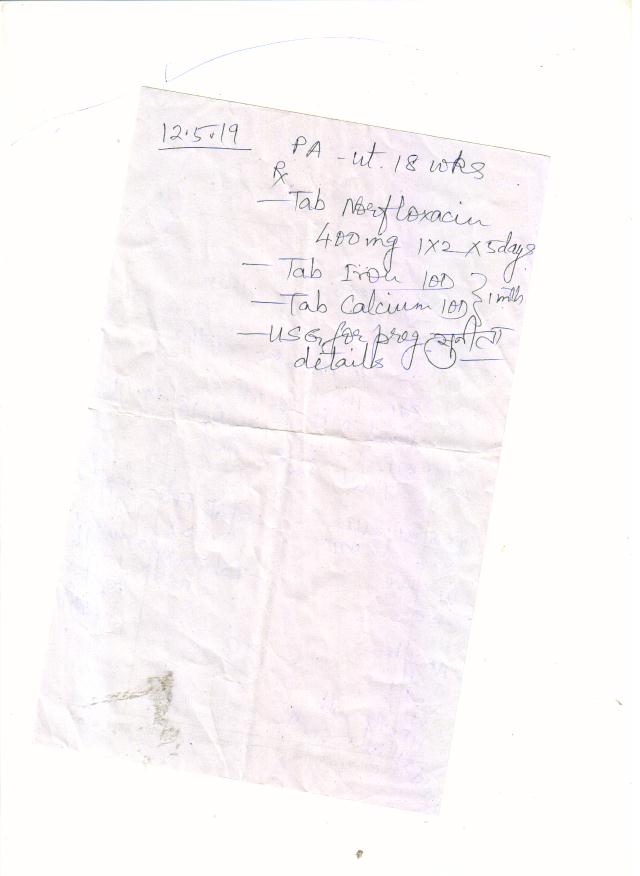 12.5.19
PA - ut. 18 wks
Rx
— Tab Norfloxacin
400mg 1X2 X 5days
— Tab Iron 1OD
— Tab Calcium 1OD } 1 mth
— USG for preg सुनीता
details